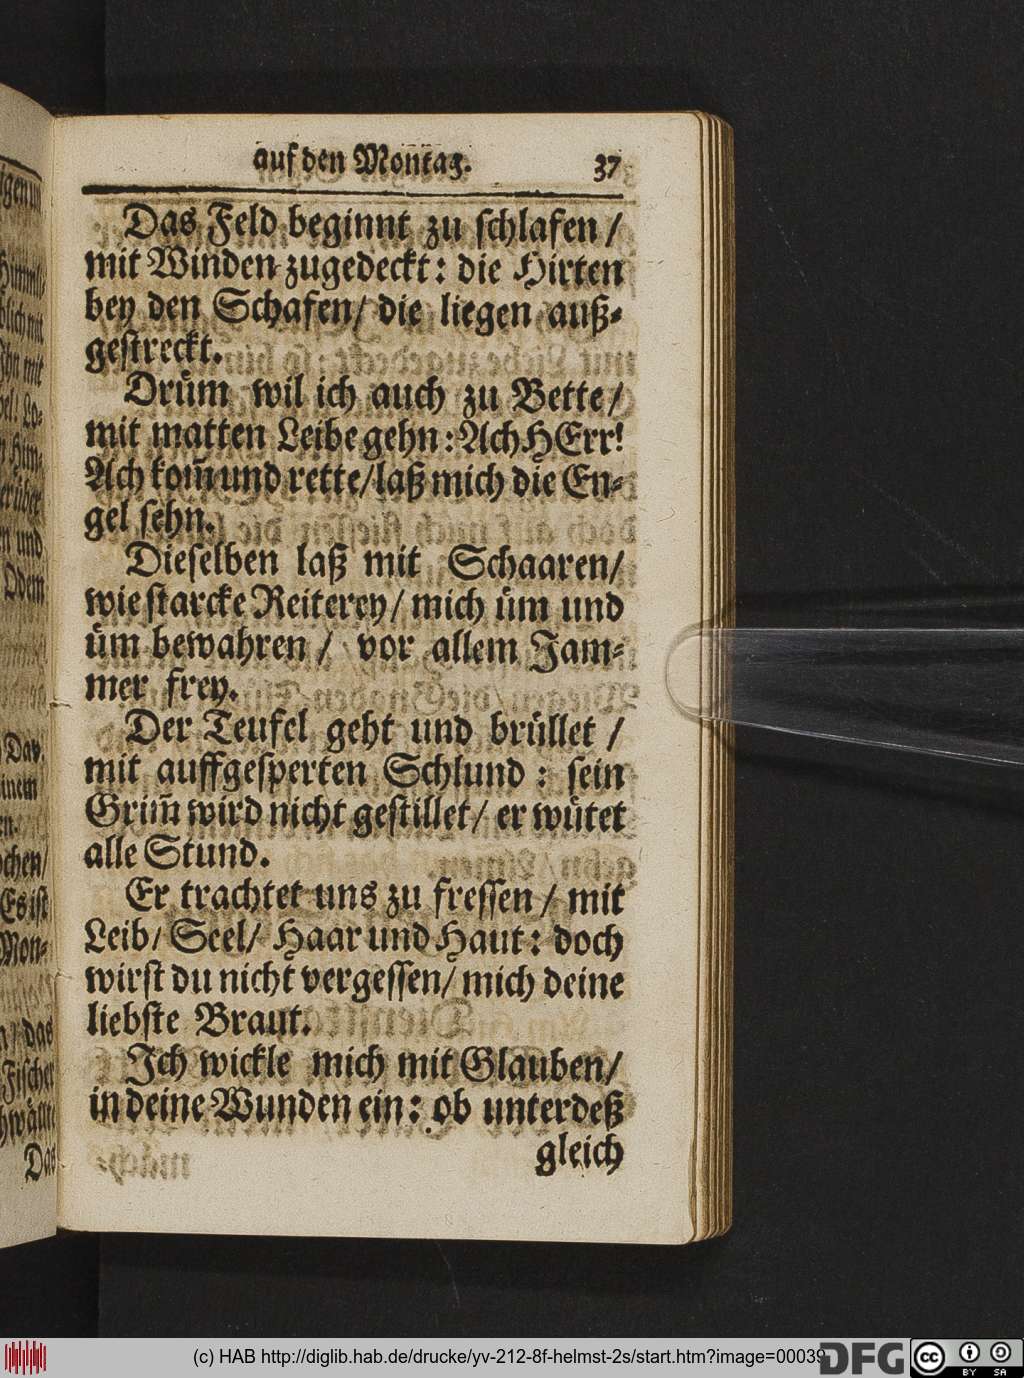 auf den Montag. 37
Das Feld beginnt zu schlafen /
mit Winden zugedeckt: die Hirten
bey den Schafen/ die liegen auß-
gestreckt.
Drüm wil ich auch zu Bette/
mit matten Leibe gehn: Ach HErr!
Ach kom̃ und rette/laß mich die En-
gel sehn.
Dieselben laß mit Schaaren/
wie starcke Reiterey/ mich üm und
üm bewahren / vor allem Jam-
mer frey.
Der Teufel geht und brüllet /
mit auffgesperten Schlund : sein
Grim̃ wird nicht gestillet/ er wütet
alle Stund.
Er trachtet uns zu fressen / mit
Leib/ Seel/ Haar und Haut: doch
wirst du nicht vergessen/ mich deine
liebste Braut.
Ich wickle mich mit Glauben/
in deine Wunden ein: ob unterdeß
gleich
(c) HAB http://diglib.hab.de/drucke/yv-212-8f-helmst-2s/start.htm?image=00039
DFG
cc
BY SA